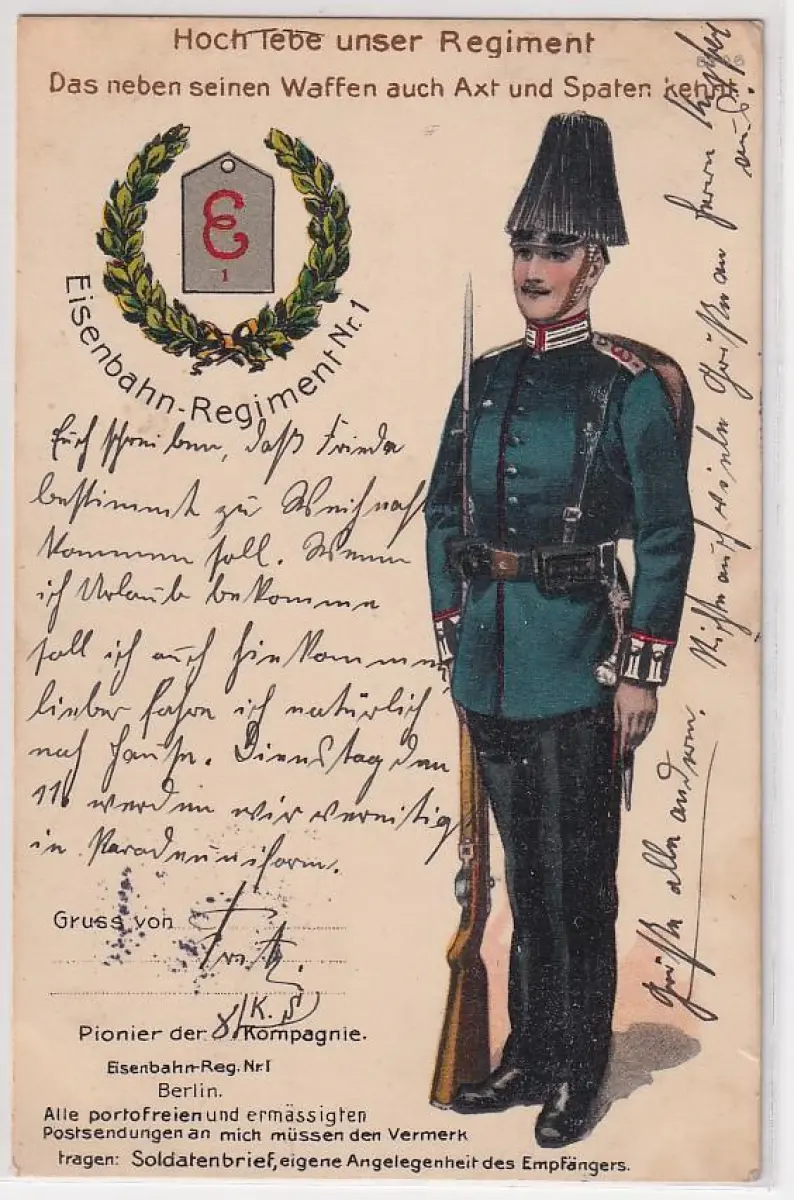 Hoch lebe unser Regiment
Das neben seinen Waffen auch Axt und Spaten kennt.
E
1
Eisenbahn-Regiment Nr. 1
Euch schreiben, daß Frieda
bestimmt zu Weihnach
kommen soll. Wenn
ich Urlaub bekomme
soll ich auch hinkommen
lieber fahre ich natürlich
nach Hause. Dienstag den
11. werden wir vereidigt
in Paradeuniform.
Gruss von Fritz.
K. S
Pionier der 8/Kompagnie.
Eisenbahn-Reg. Nr. 1
Berlin.
Alle portofreien und ermässigten
Postsendungen an mich müssen den Vermerk
tragen: Soldatenbrief, eigene Angelegenheit des Empfängers.
Grüße alle andern. Richte auch viele Grüße an Herrn
aus.